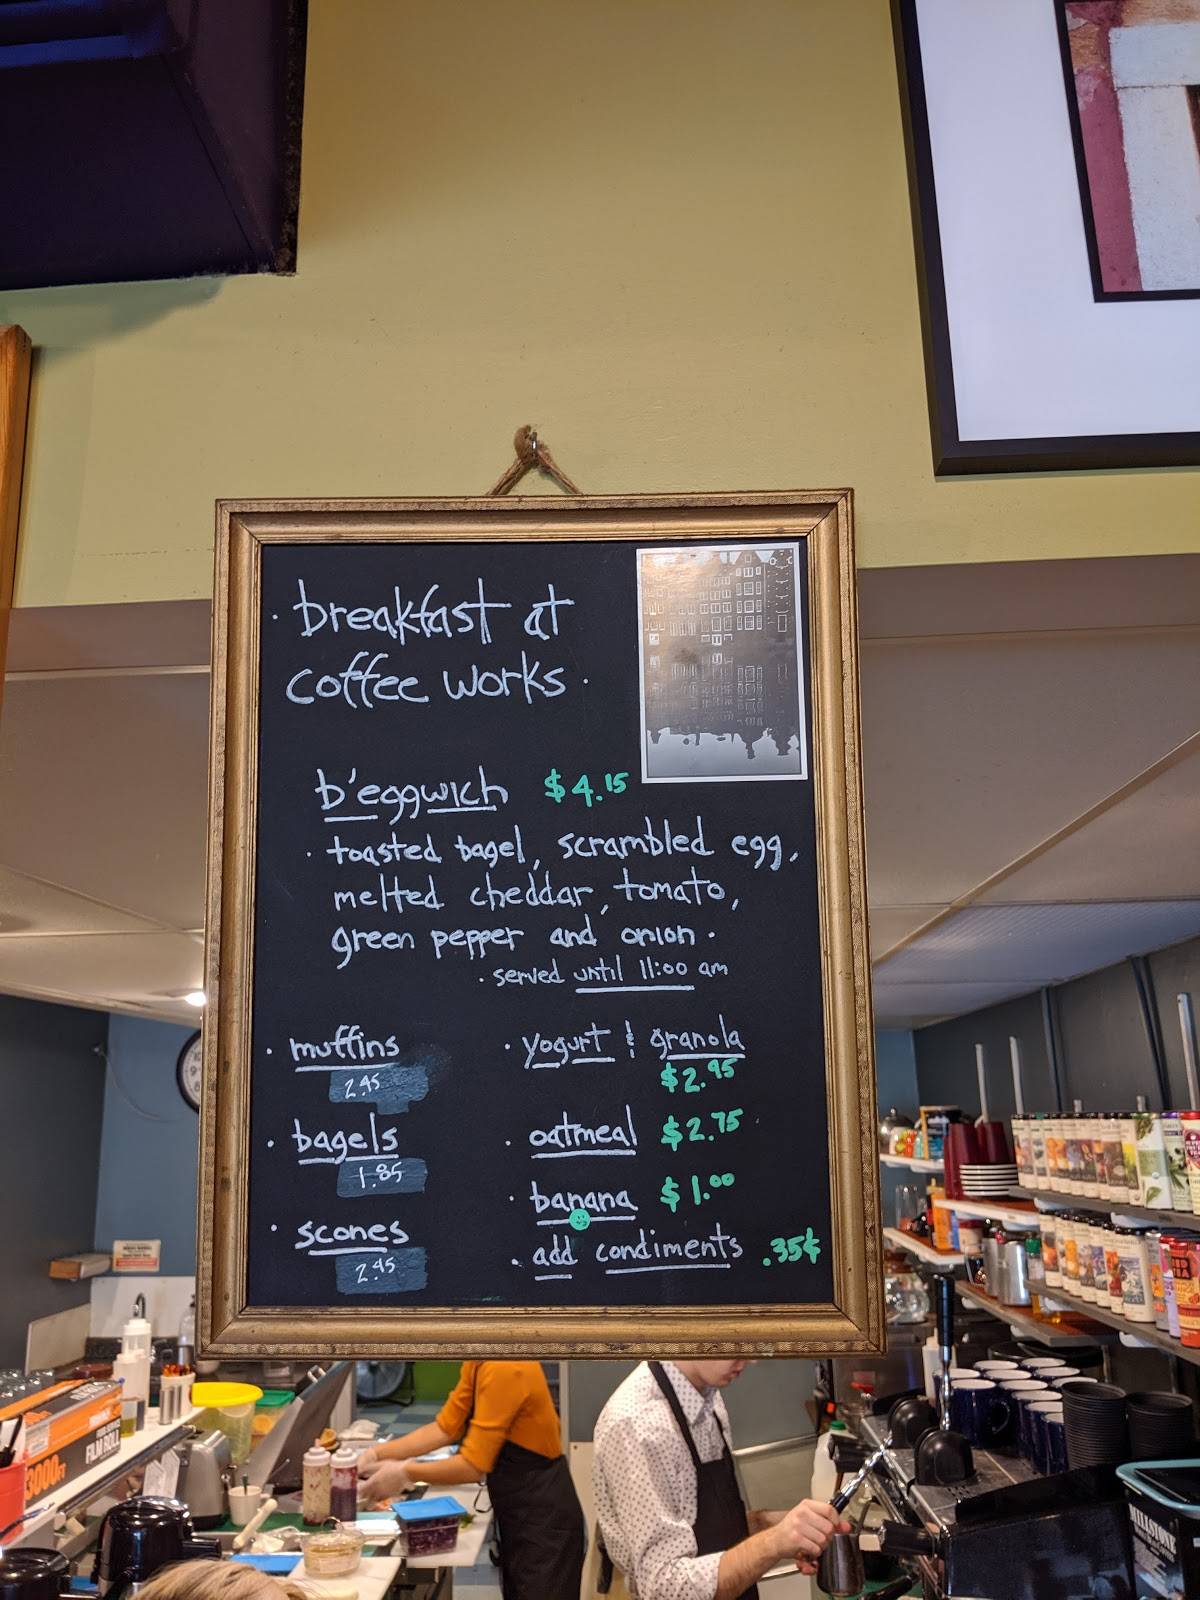 · breakfast at
coffee works ·
b'eggwich $4.15
· toasted bagel, scrambled egg,
melted cheddar, tomato,
green pepper and onion ·
· served until 11:00 am
· muffins
2.45
· bagels
1.85
· scones
2.45
· yogurt & granola
$2.95
· oatmeal $2.75
· banana $1.00
· add condiments .35¢
FILM ROLL
3000FT
MILLSTONE